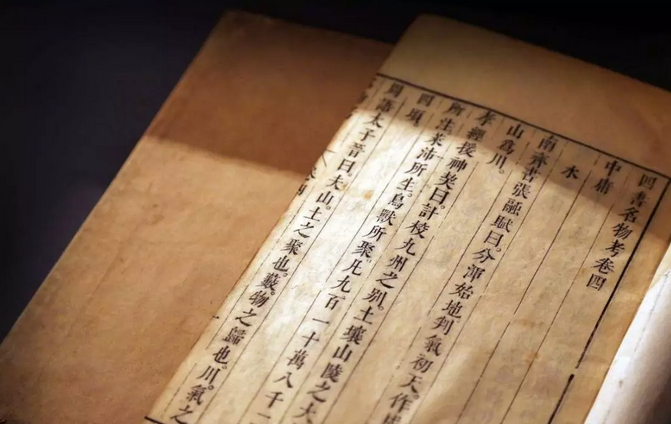 四書名物考卷四
中庸
水
南齊書張融賦曰。分渾始地。判氣初天。作
山爲川。
孝經援神契曰。計校九州之别。土壤山陵之大
所注來沛所生。鳥獸所聚。凡九百一十萬八千二
四頃
周語太子晉曰。夫山。土之聚也。藪。物之歸也。川。氣之